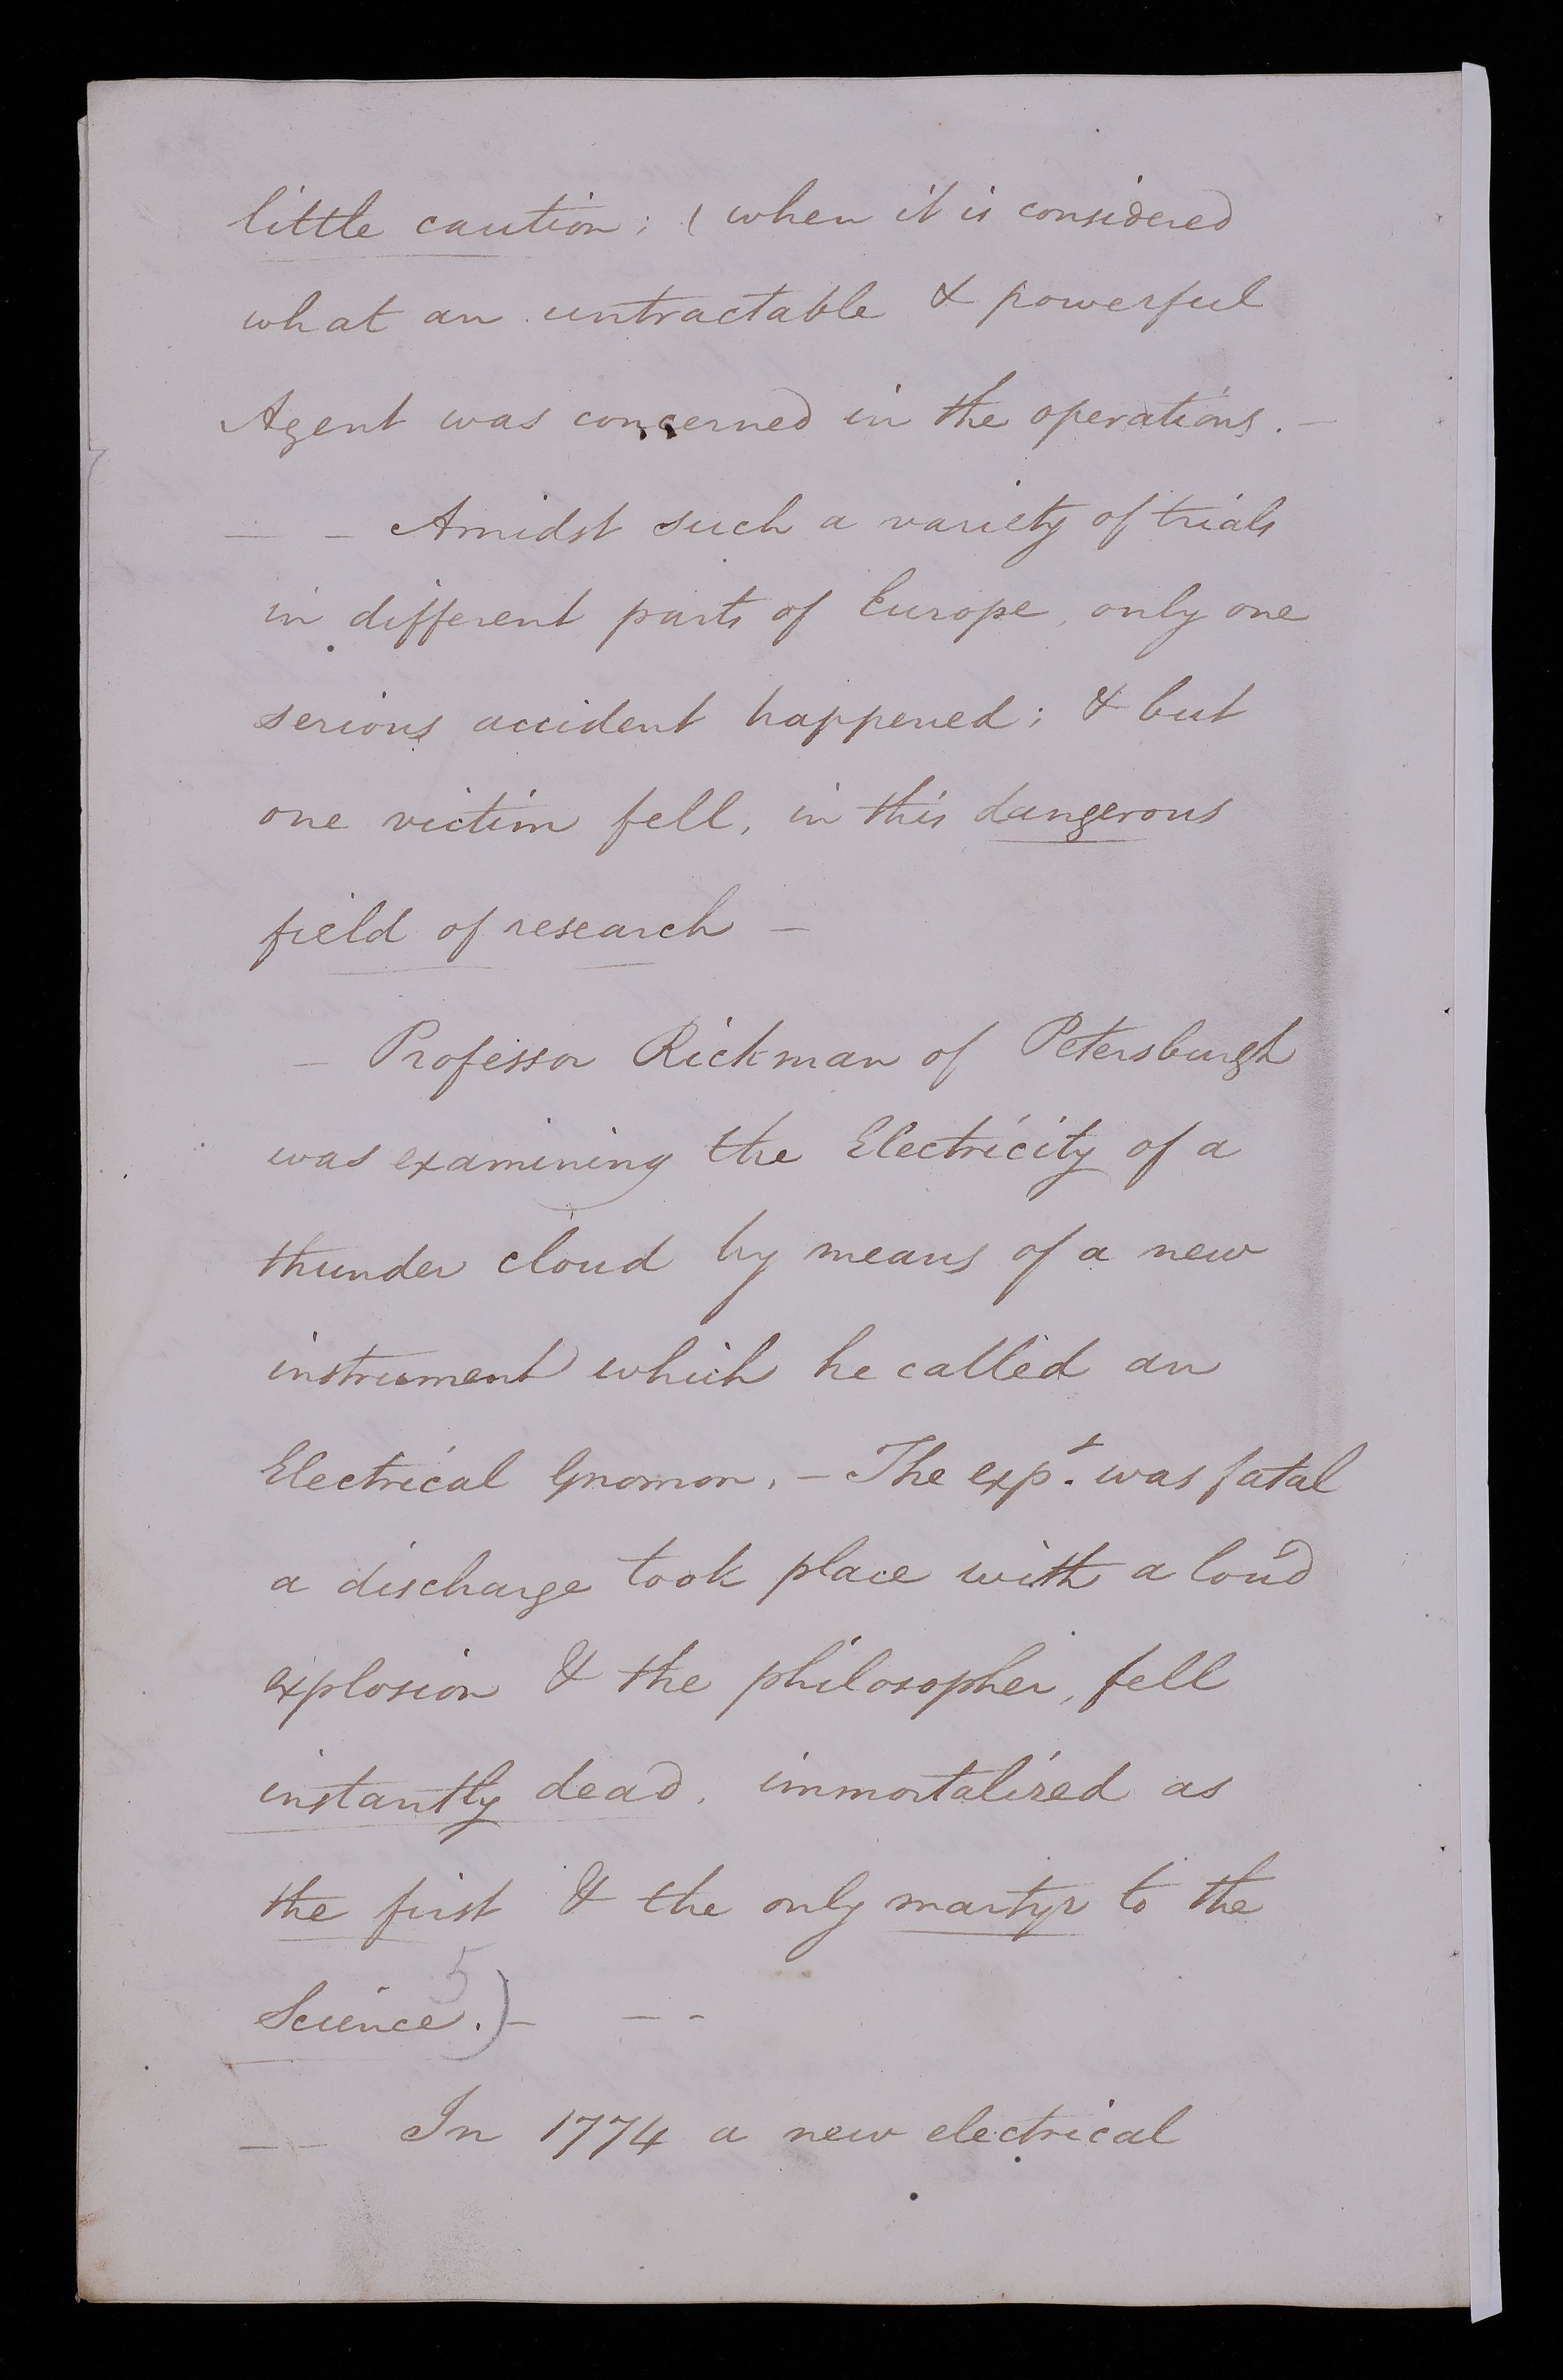 little caution; ( when it is considered
what an untractable & powerful
Agent was concerned in the operations. —
— — Amidst such a variety of trials
in different parts of Europe, only one
serious accident happened; & but
one victim fell, in this dangerous
field of research —
— Professor Rickman of Petersburgh
was examining the Electricity of a
thunder cloud by means of a new
instrument which he called an
Electrical Gnomon. — The expt. was fatal
a discharge took place with a loud
explosion & the philosopher, fell
instantly dead. immortalized as
the first & the only martyr to the
5
Science.) — — -
— — In 1774 a new electrical